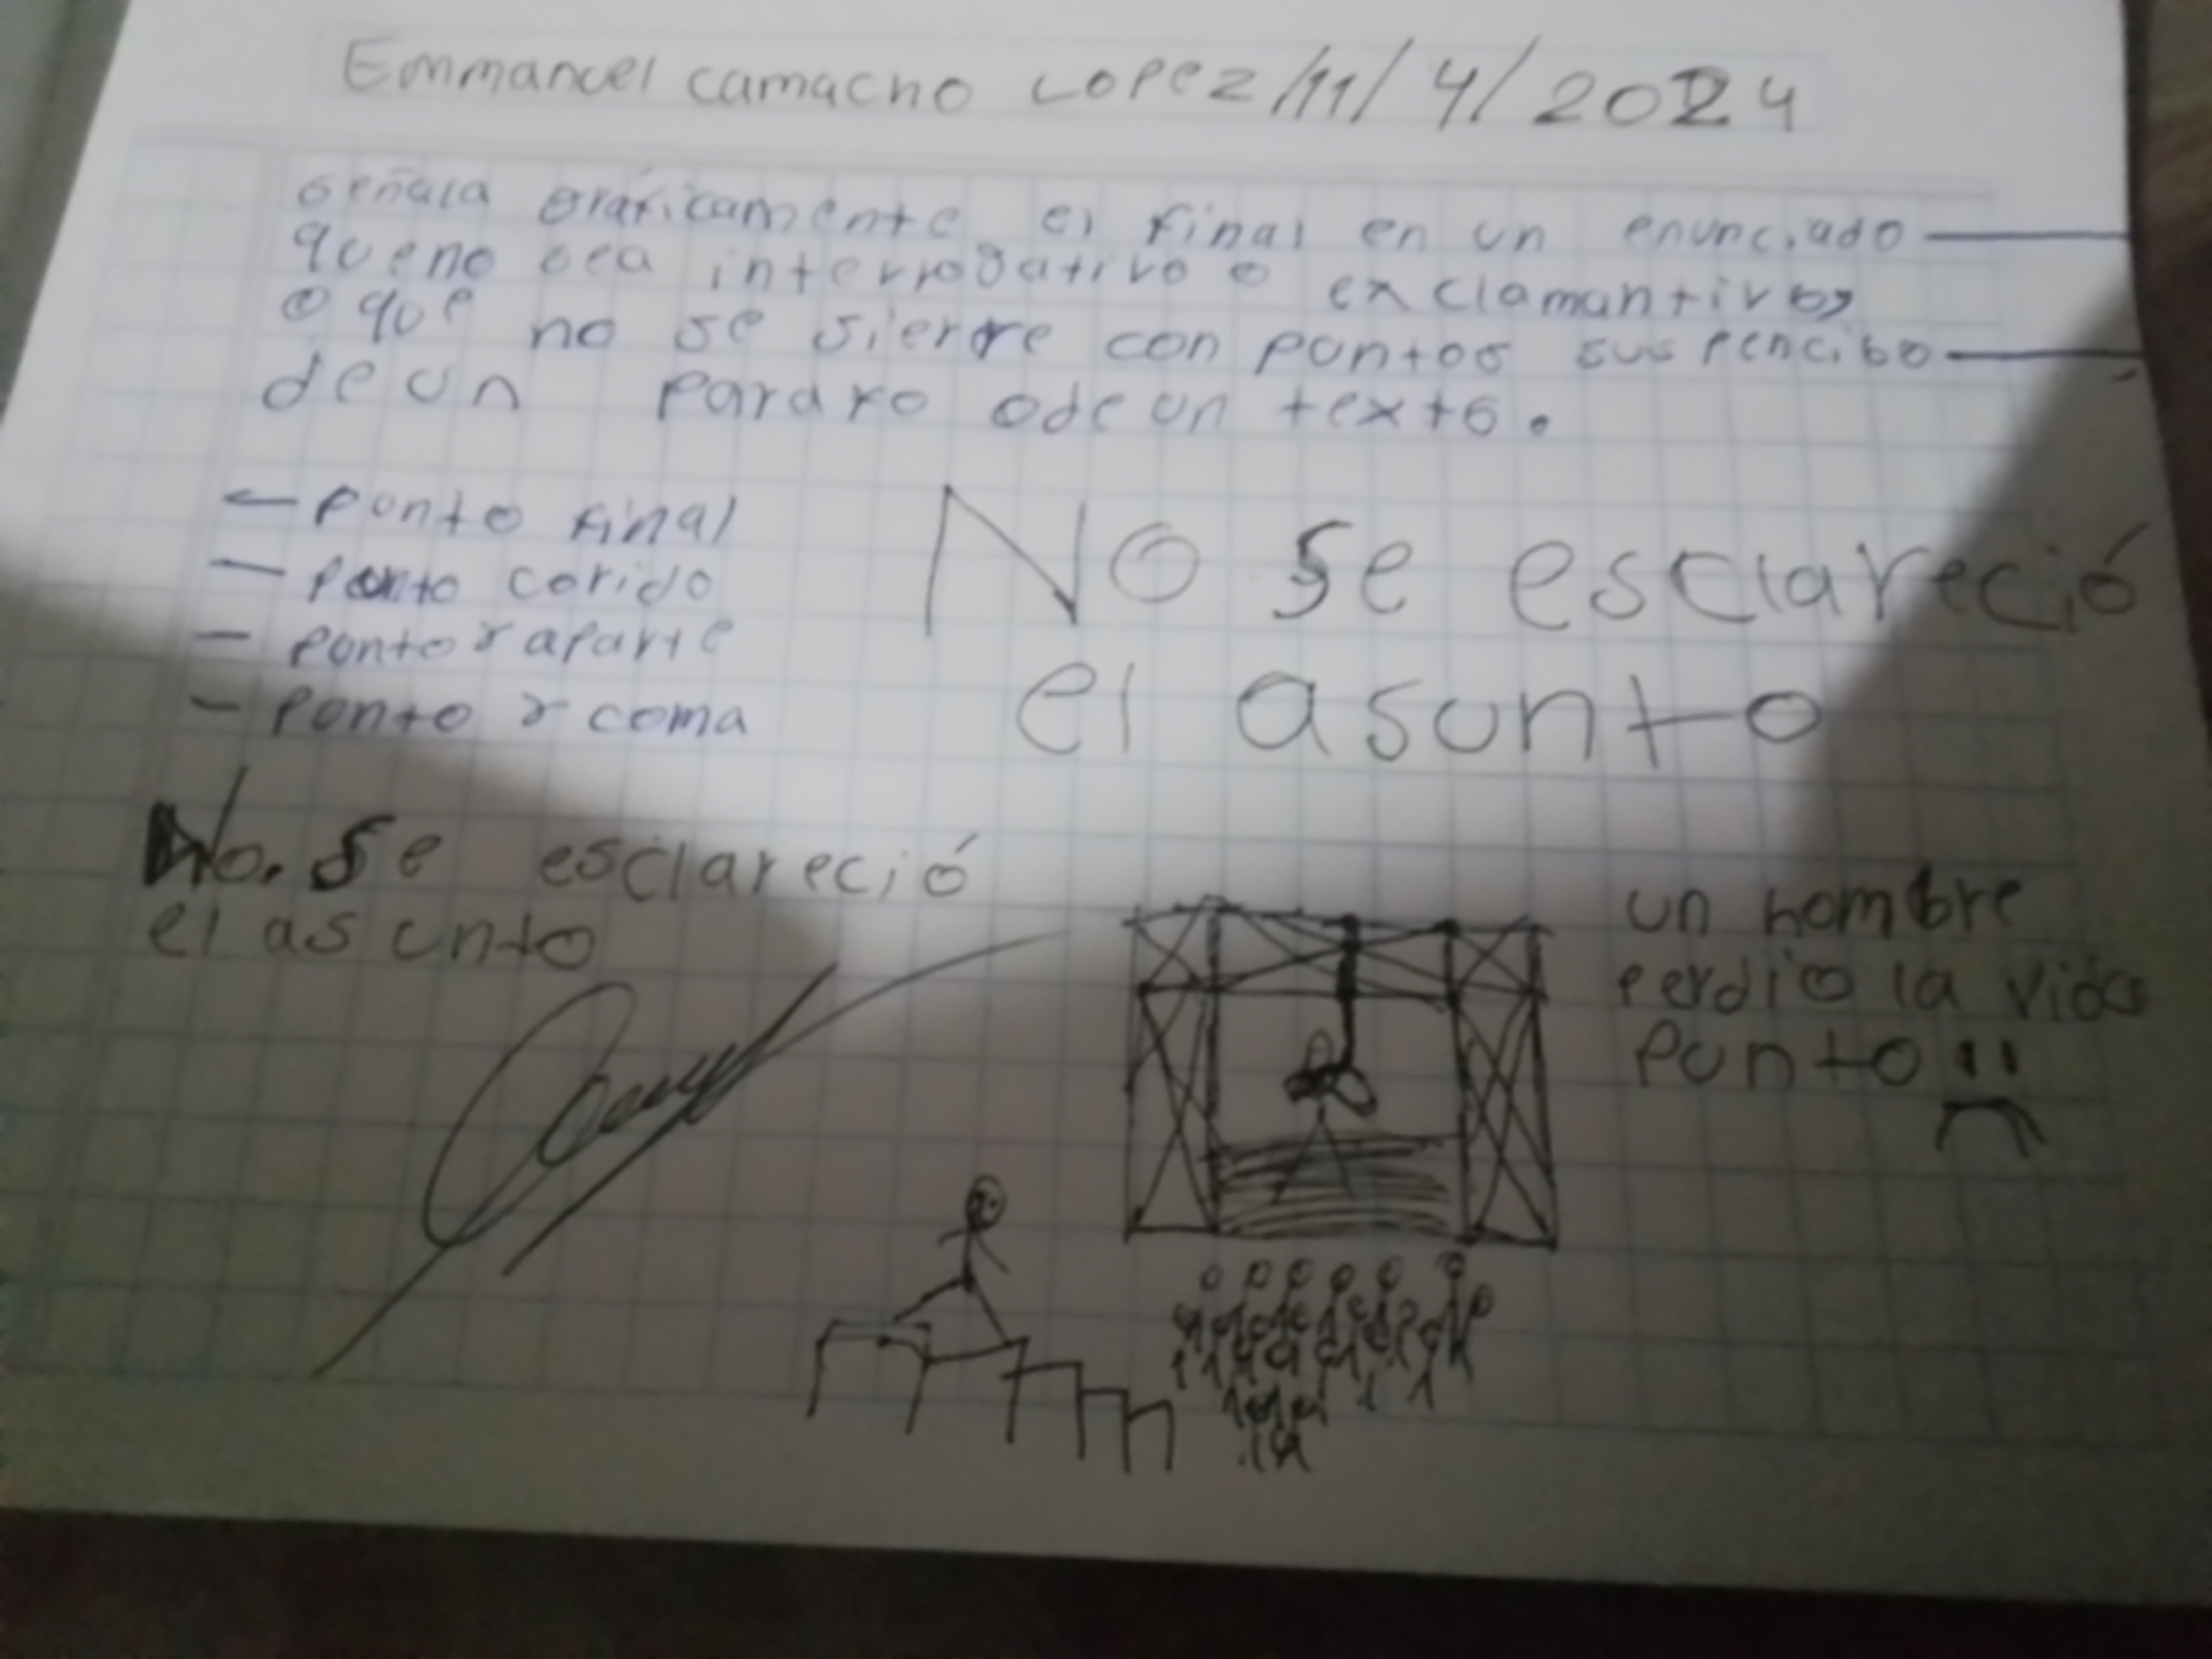 Emmanuel camacho Lopez/11/4/2024
señala gráficamente el final en un enunciado
que no sea interrogativo o exclamantivo,
o que no se sierre con puntos suspencibo
de un pararo o de un texto.
- punto final
- punto corido
- punto y aparte
- punto y coma
No se esclareció
el asunto
No. se esclareció
el asunto
un hombre
perdio la vida
punto